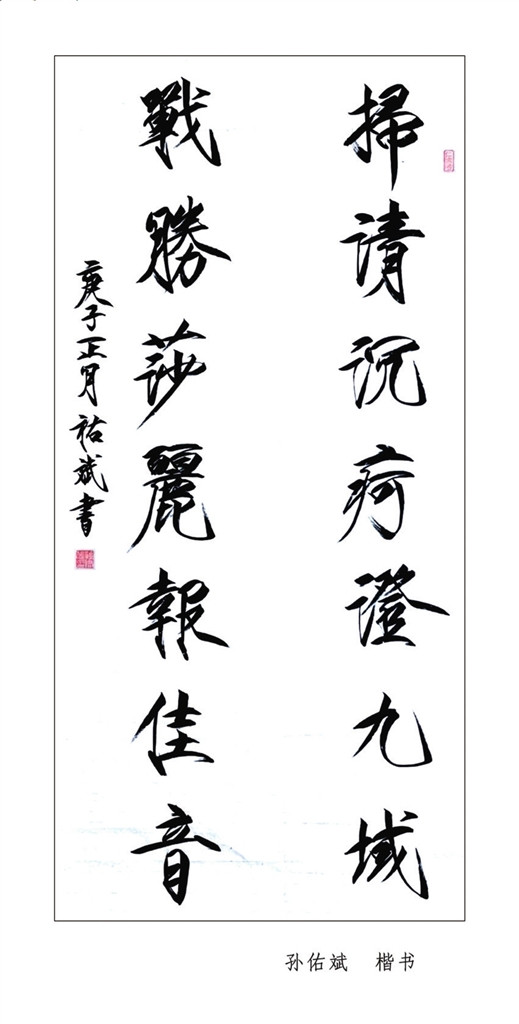 掃清沉疴澄九域
戰勝莎麗報佳音
庚子正月祐斌書
孙佑斌 楷书